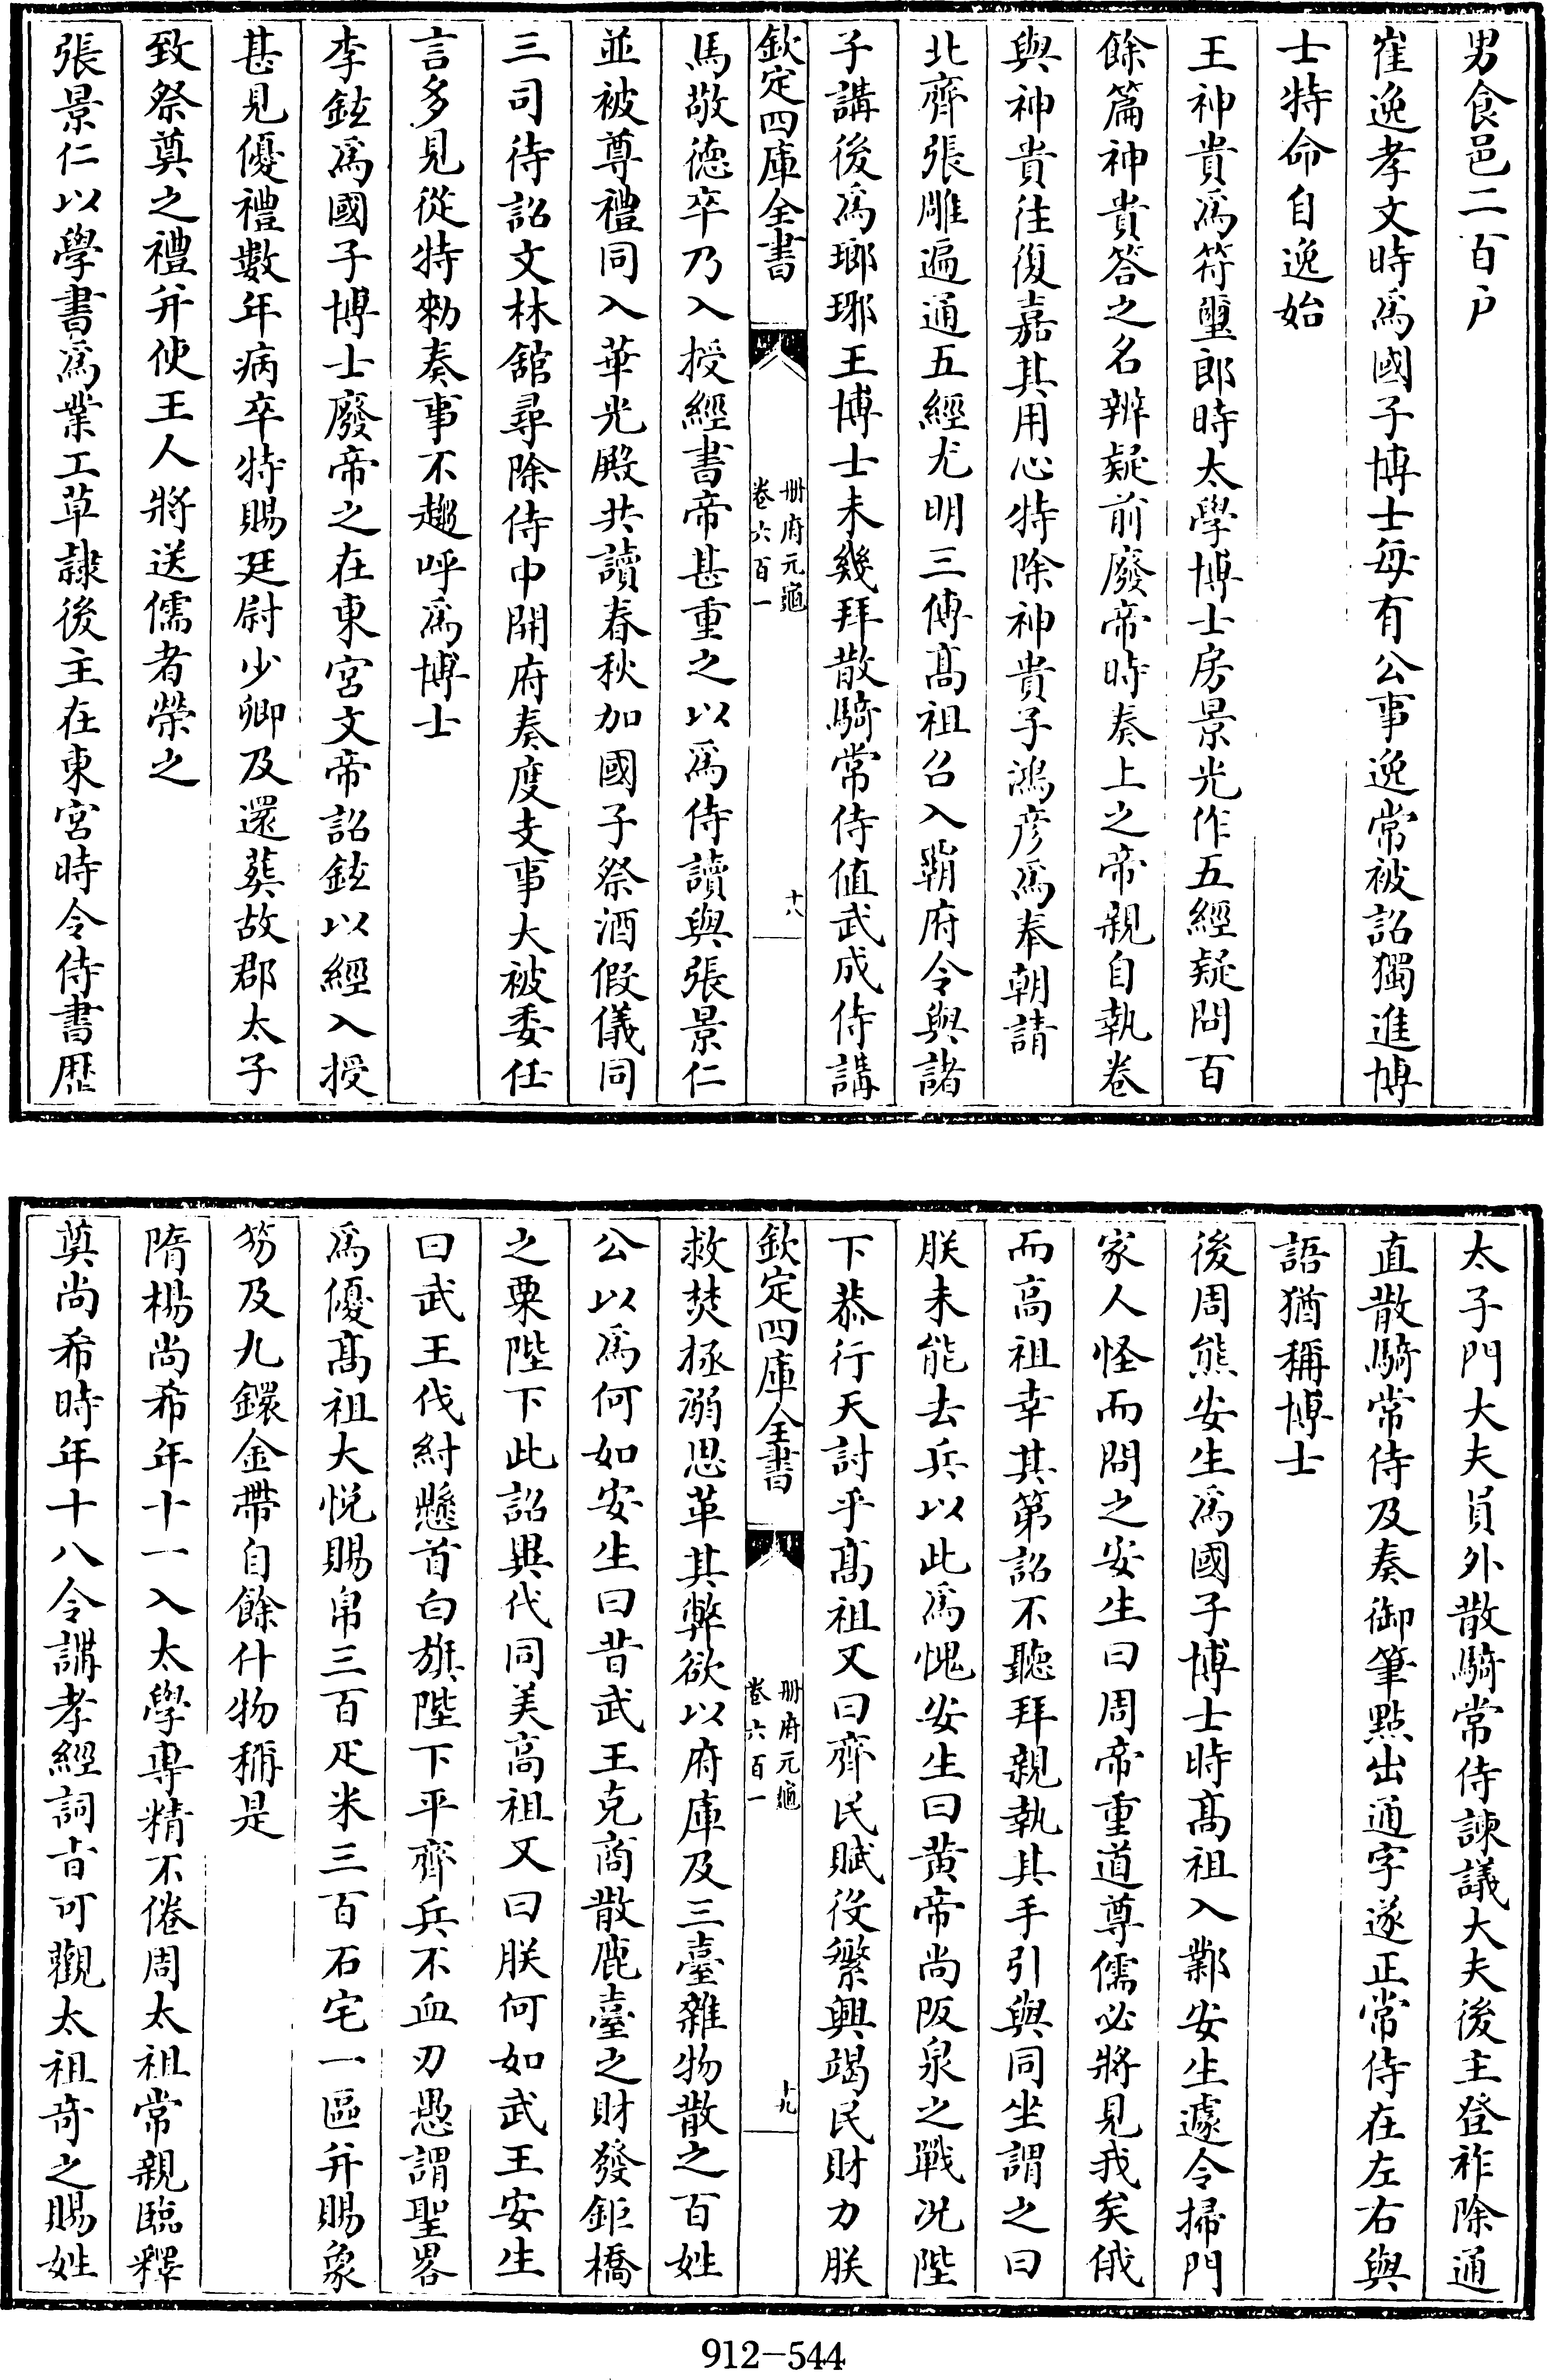 男食邑二百户
崔逸孝文時爲國子博士每有公事逸常被詔獨進博
士特命自逸始
王神貴爲符璽郎時太學博士房景光作五經疑問百
餘篇神貴答之名辨疑前廢帝時奏上之帝親自執卷
與神貴往復嘉其用心特除神貴子鴻彦爲奉朝請
北齊張雕遍通五經尤明三傳髙祖召入霸府令與諸
子講後爲瑯琊王博士未幾拜散騎常侍值武成侍講
欽定四庫全書
册府元龜
卷六百一
十八
馬敬德卒乃入授經書帝甚重之以爲侍讀與張景仁
並被尊禮同入華光殿共讀春秋加國子祭酒假儀同
三司待詔文林舘尋除侍中開府奏度支事大被委任
言多見從特勑奏事不趨呼爲博士
李鉉爲國子博士廢帝之在東宮文帝詔鉉以經入授
甚見優禮數年病卒特賜廷尉少卿及還葬故郡太子
致祭奠之禮并使王人將送儒者榮之
張景仁以學書爲業工草隷後主在東宮時令侍書歴
太子門大夫員外散騎常侍諫議大夫後主登祚除通
直散騎常侍及奏御筆點出通字遂正常侍在左右與
語猶稱博士
後周熊安生爲國子博士時髙祖入鄴安生遽令掃門
家人怪而問之安生曰周帝重道尊儒必將見我矣俄
而高祖幸其第詔不聽拜親執其手引與同坐謂之曰
朕未能去兵以此爲愧安生曰黄帝尚阪泉之戰况陛
下恭行天討乎髙祖又曰齊民賦役繁興竭民財力朕
欽定四庫全書
册府元龜
卷六百一
十九
救焚拯溺思革其弊欲以府庫及三臺雜物散之百姓
公以爲何如安生曰昔武王克商散鹿臺之財發鉅橋
之粟陛下此詔異代同美高祖又曰朕何如武王安生
曰武王伐紂懸首白旗陛下平齊兵不血刃愚謂聖畧
爲優髙祖大悦賜帛三百疋米三百石宅一區并賜象
笏及九鐶金帶自餘什物稱是
隋楊尚希年十一入太學専精不倦周太祖常親臨釋
奠尚希時年十八令講孝經詞㫖可觀太祖竒之賜姓
912-544